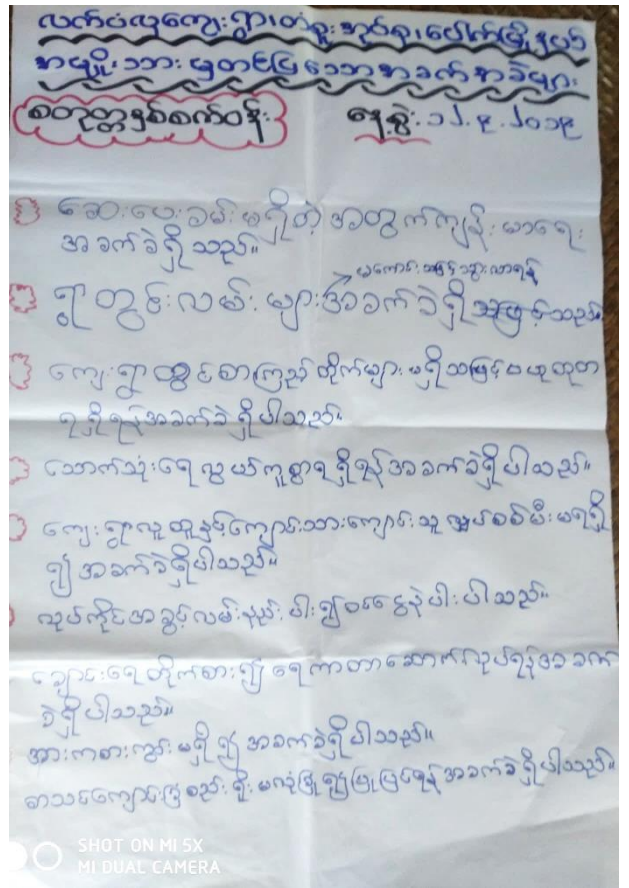 လက်ပံလှကျေးရွာ၊တံခူးအုပ်စု၊ပေါက်မြို့နယ်
အမျိုးသားမှတင်ပြသောအခက်အခဲများ
စတုတ္ထနှစ်စက်ဝန်း
နေ့စွဲ.၁၂.၉.၂၀၁၉
ဆေးပေးခန်းမရှိတဲ့အတွက်ကျန်းမာရေး
အခက်ခဲရှိသည်။
မကောင်းသဖြင့်သွားလာရန်
ရွာတွင်းလမ်းများအခက်ခဲရှိသဖြင့်သည်။
ကျေးရွာတွင်စာကြည့်တိုက်များမရှိသဖြင့်ဗဟုသုတ
ရရှိရန်အခက်ခဲရှိပါသည်။
သောက်သုံးရေလွယ်ကူစွာရရှိရန်အခက်ခဲရှိပါသည်။
ကျေးရွာလူထုနှင့်ကျောင်းသားကျောင်းသူလျှပ်စစ်မီးမရရှိ
၍အခက်ခဲရှိပါသည်။
လုပ်ကိုင်အခွင့်လမ်းနည်းပါး၍ဝင်ငွေနဲပါးပါသည်။
ချောင်းရေတိုက်စား၍ရေကာတာဆောက်လုပ်ရန်အခက်
ခဲရှိပါသည်။
အားကစားကွင်းမရှိ၍အခက်ခဲရှိပါသည်။
စာသင်ကျောင်းခြံစည်းရိုးမလုံခြုံ၍ပြုပြင်ရန်အခက်ခဲရှိပါသည်။
SHOT ON MI 5X
MI DUAL CAMERA